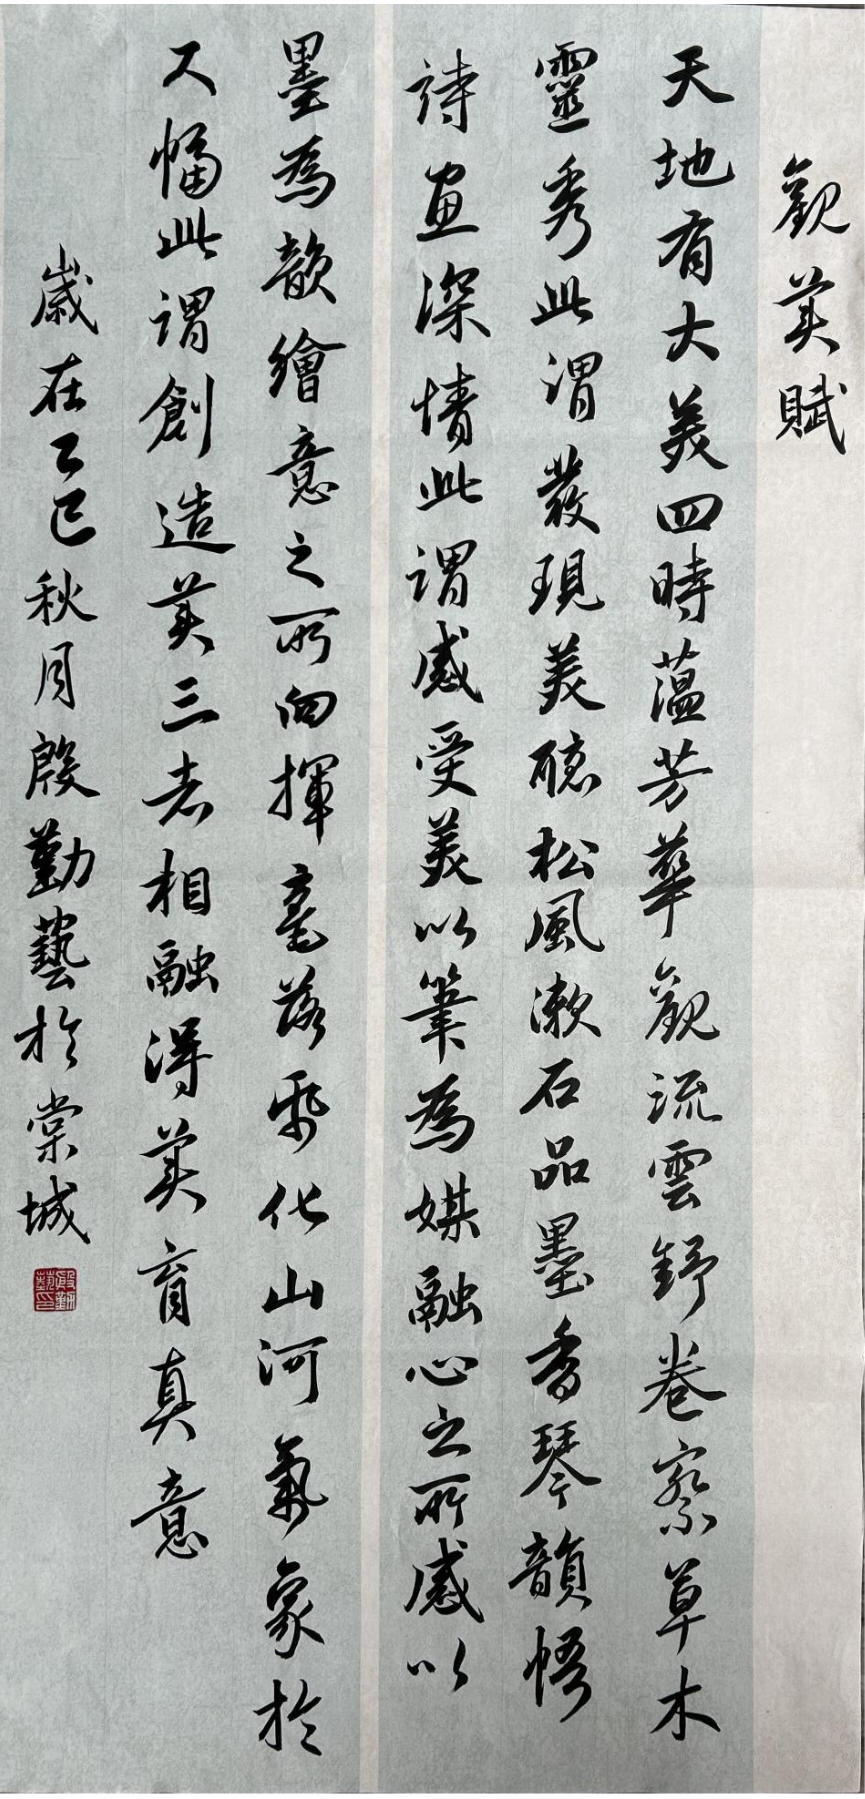 觀美賦
天地有大美四時蘊芳華觀流雲舒卷察草木
靈秀此謂發現美聽松風漱石品墨香琴韻悟
詩畫深情此謂感受美以筆為媒融心之所感以
墨為韵繪意之所向揮毫落帋化山河氣象於
尺幅此謂創造美三者相融得美育真意
歲在乙巳秋月殷勤藝於棠城
殷勤藝印